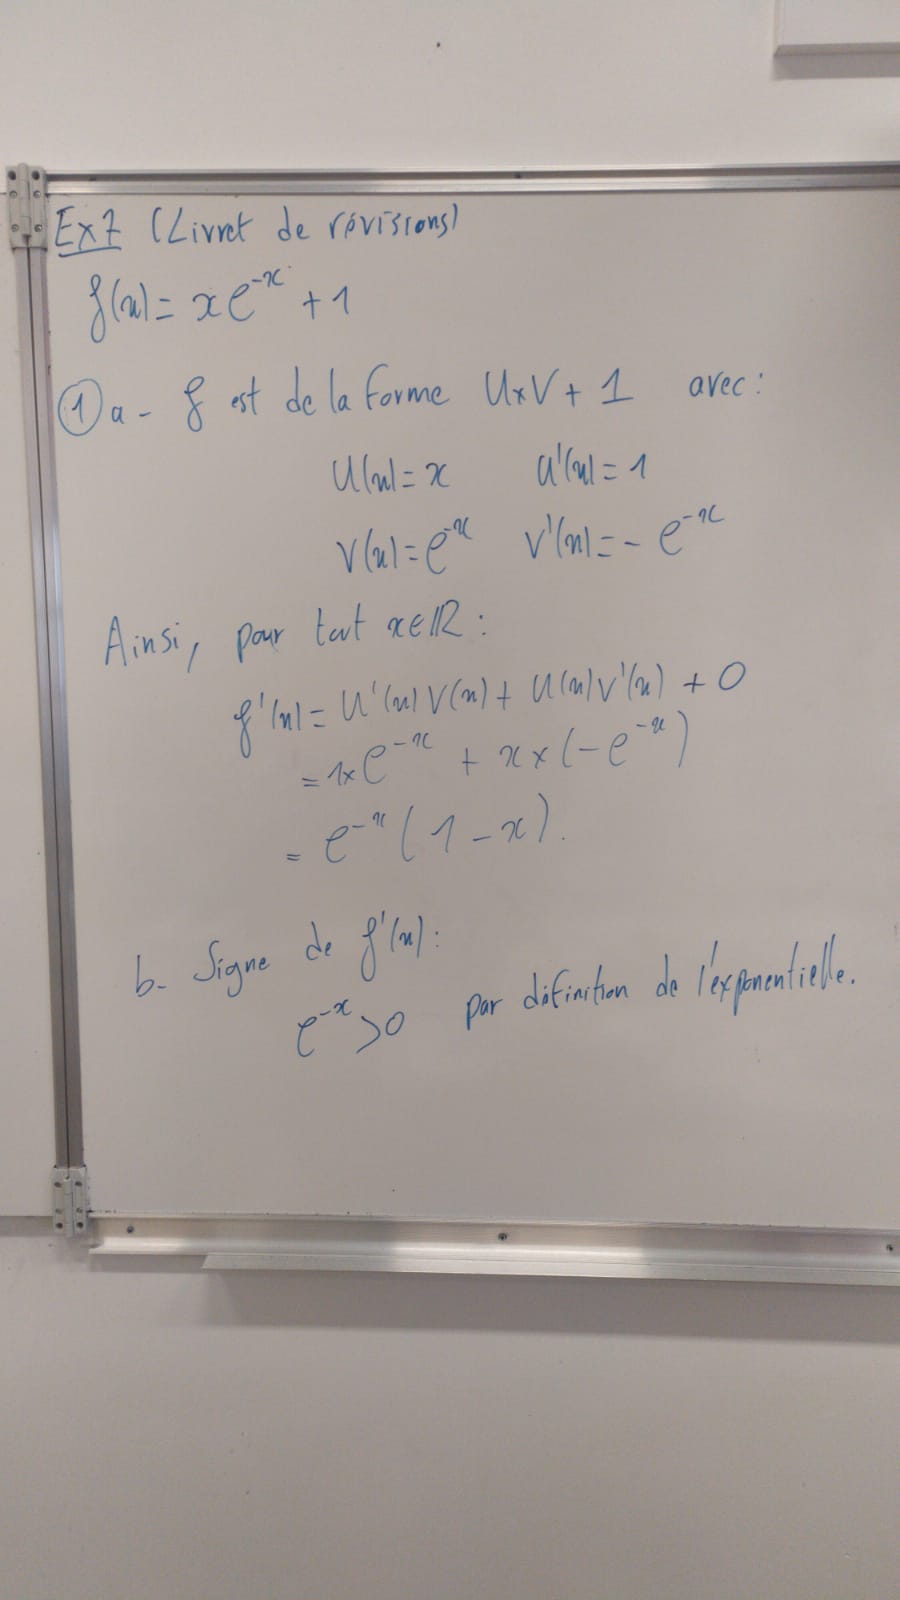 Ex7 (Livret de révisions)
f(x) = xe⁻ˣ + 1
① a - f est de la forme U×V + 1 avec :
U(x) = x U'(x) = 1
V(x) = e⁻ˣ V'(x) = - e⁻ˣ
Ainsi, pour tout x∈ℝ :
f'(x) = U'(x) V(x) + U(x) V'(x) + 0
= 1× e⁻ˣ + x × (-e⁻ˣ)
= e⁻ˣ (1 - x).
b- Signe de f'(x) :
e⁻ˣ > 0 par définition de l'exponentielle.